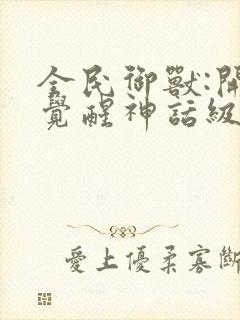 全民御獸:開
覺醒神話級
愛上優柔寡斷